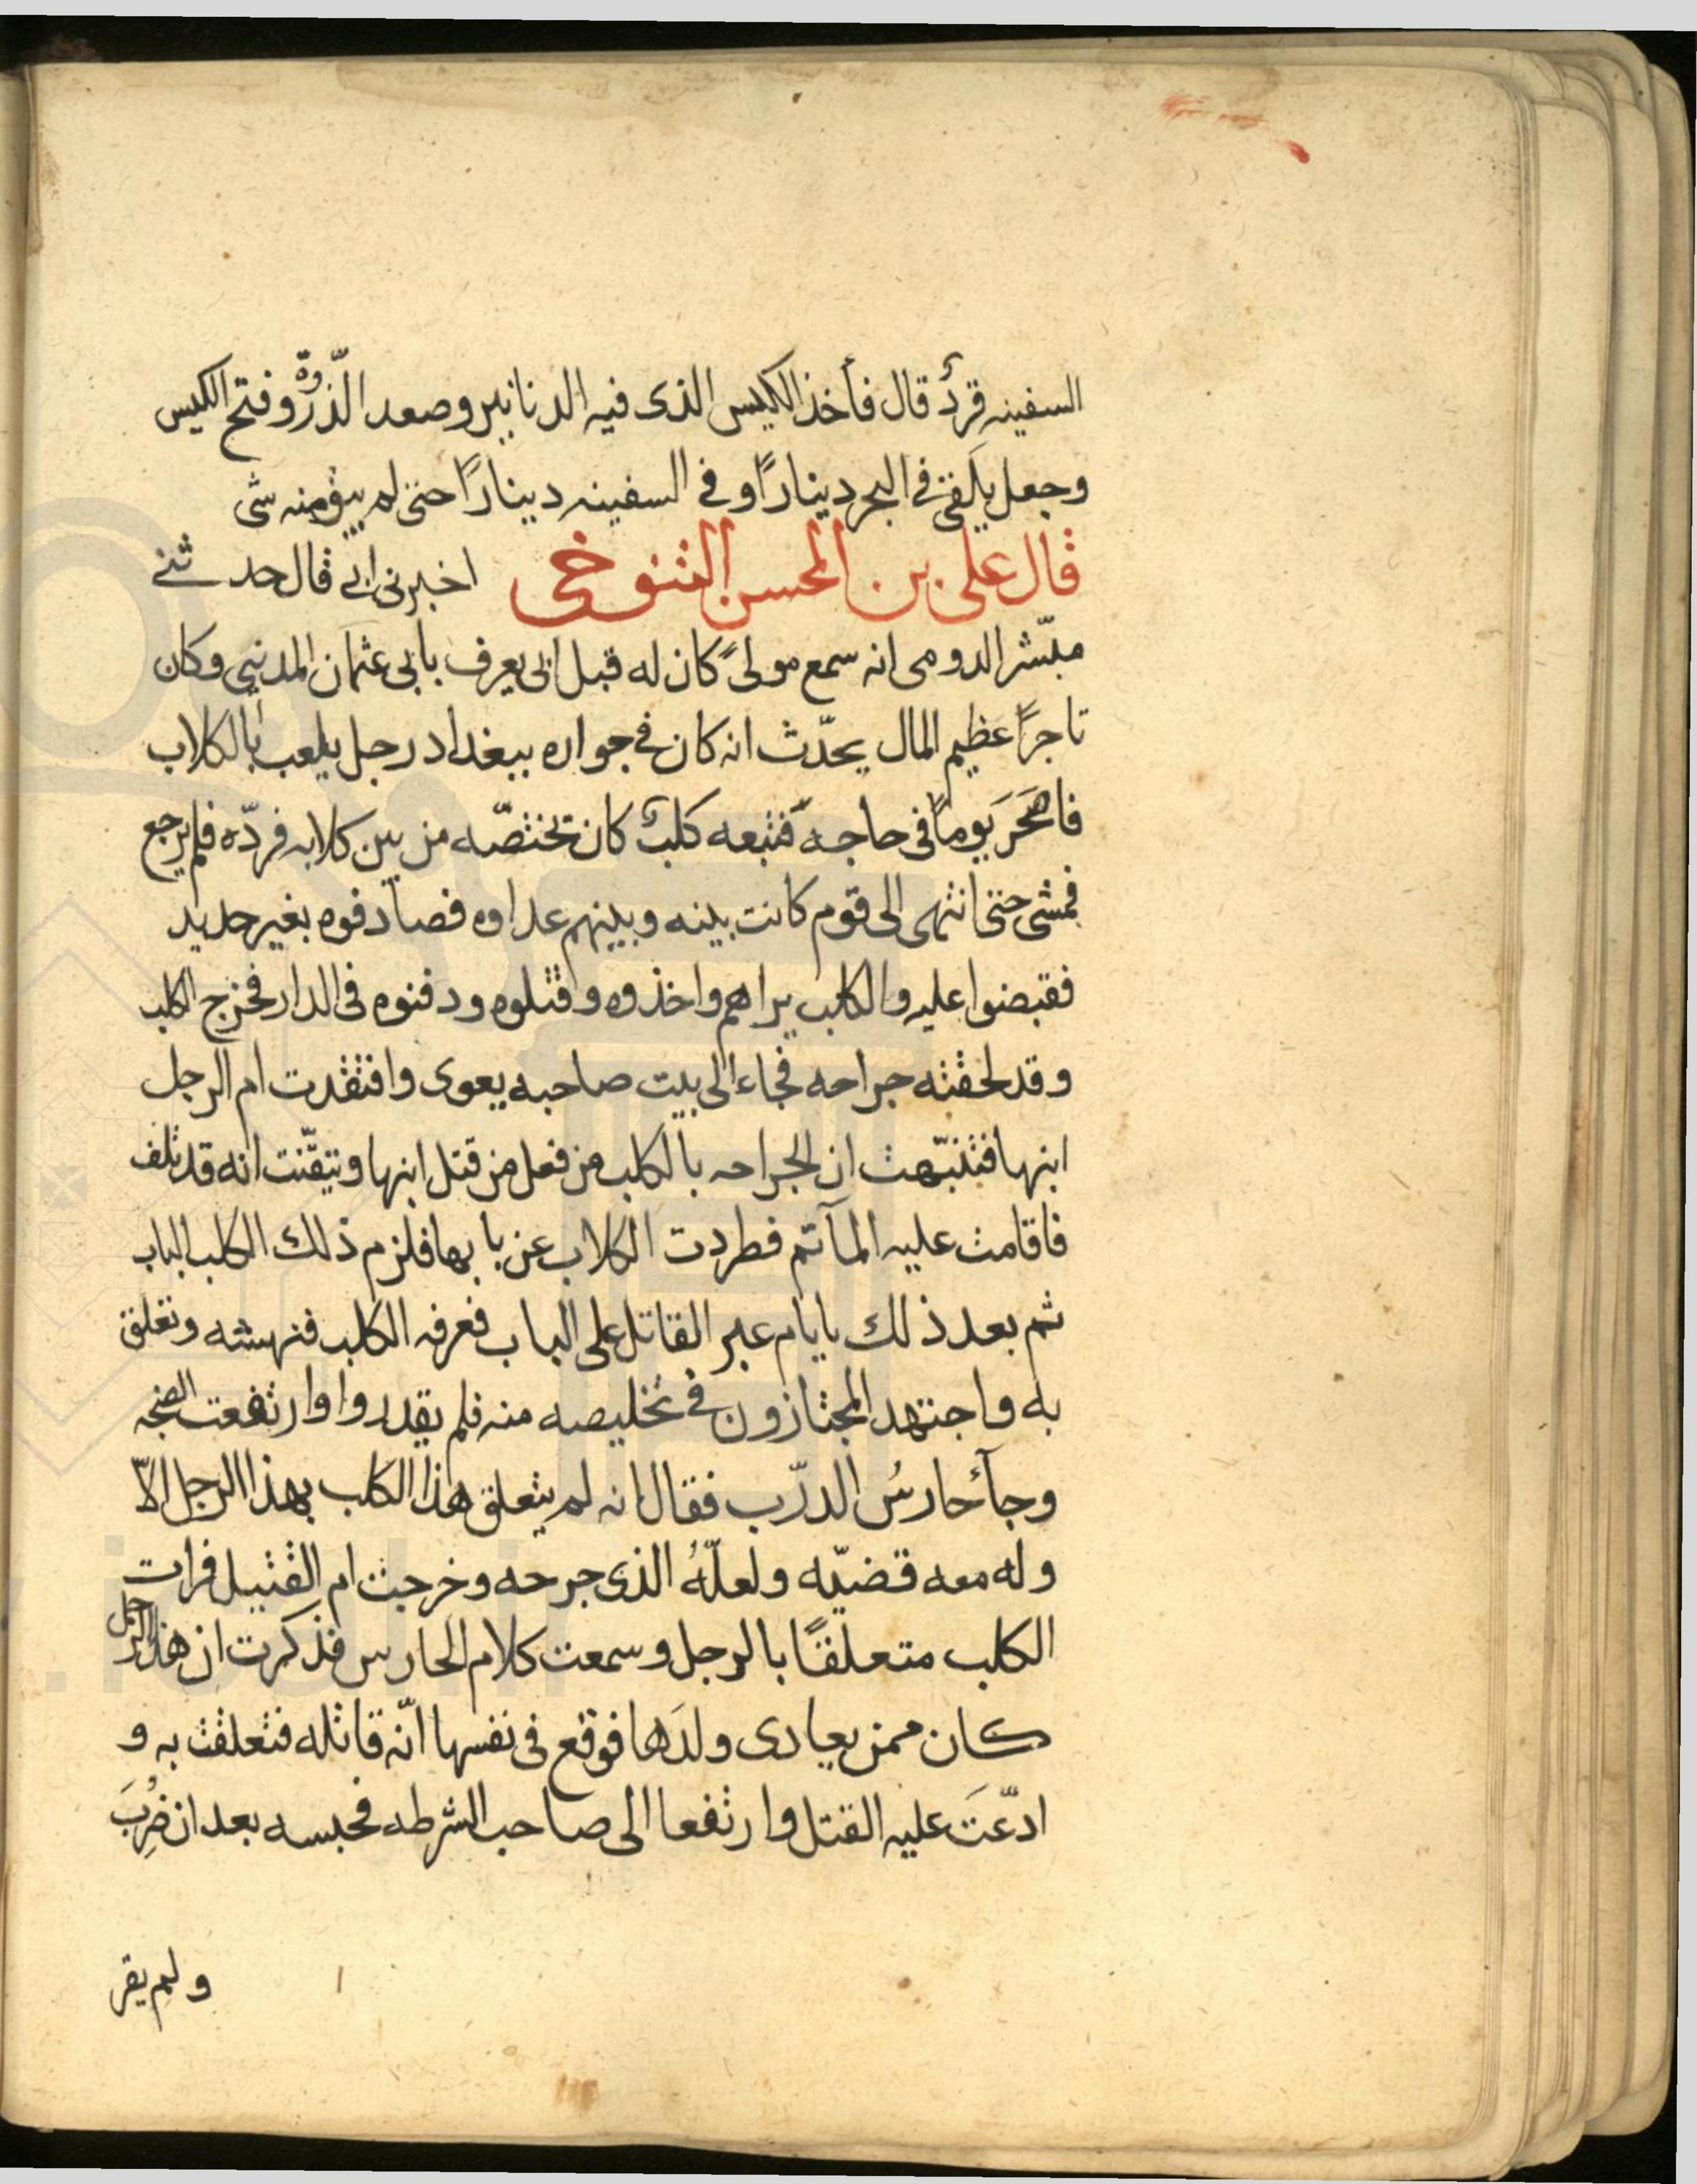 السفينه قردٌ قال فأخذ الكيس الذى فيه الدنانير وصعد الذّروة وفتح الكيس
وجعل يلقى فى البحر دينارًا وفى السفينه دينارًا حتى لم يبق منه شى
قال على بن المحسن التنوخى اخبرنى ابى قال حدثنى
مبشّر الدومى انه سمع مولىً كان له قبل ابى يعرف بابى عثمان المدينى وكان
تاجرًا عظيم المال يحدّث انه كان فى جواره ببغداد رجل يلعب بالكلاب
فاصحَرَ يومًا فى حاجةٍ فتبعه كلبٌ كان تختصّه من بين كلابه فردّه فلم يرجع
فمشى حتى انتهى الى قوم كانت بينه وبينهم عداوه فصادفوه بغير حديد
فقبضوا عليه والكلب يراهم واخذوه وقتلوه ودفنوه فى الدار فخرج الكلب
وقد لحقته جراحه فجاء الى بيت صاحبه يعوى وافتقدت ام الرجل
ابنها فتنبّهت ان الجراحه بالكلب من فعل من قتل ابنها وتيقّنت انه قد تلف
فاقامت عليه المآتم فطردت الكلاب عن بابها فلزم ذلك الكلب الباب
ثم بعد ذلك بايام عبر القاتل على الباب فعرفه الكلب فنهشه وتعلق
به واجتهد المجتازون فى تخليصه منه فلم يقدروا وارتفعت الضجه
وجآءَ حارسُ الدرّب فقال انه لم يتعلق هذا الكلب بهذا الرجل الاّ
وله معه قضيّه ولعلّهُ الذى جرحه وخرجت ام القتيل فرات
الكلب متعلقًا بالرجل وسمعت كلام الحارس فذكرت ان هذا الرجل
كان ممن يعادى ولدَها فوقع فى نفسها انّه قاتله فتعلقت به و
ادّعَت عليه القتل وارتفعا الى صاحب الشرطه فحبسه بعد ان ضُرِبَ
ولم يقر